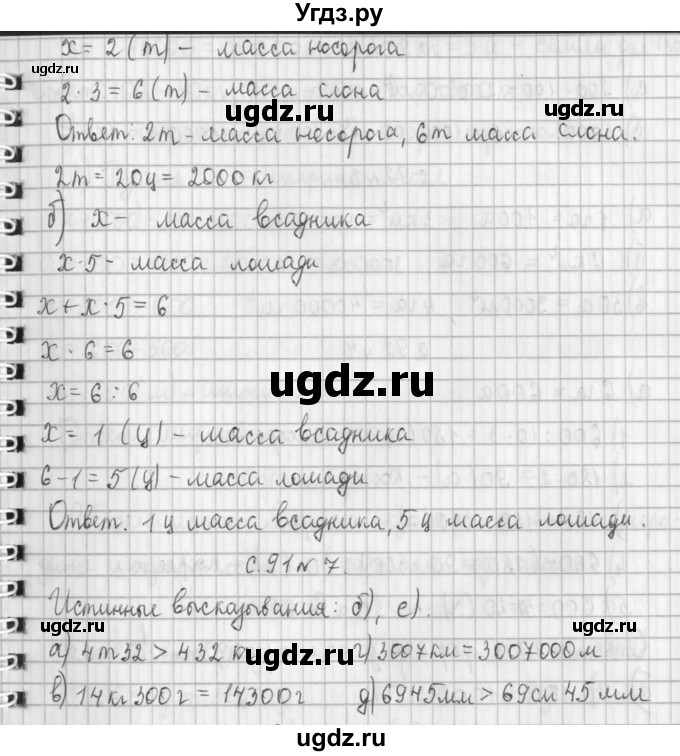 Угдз.ру
x = 2 (т) - масса носорога
ugdz.ru
ugdz.ru
2 · 3 = 6 (т) - масса слона
ugdz.ru
ugdz.ru
Ответ: 2т - масса носорога, 6т масса слона.
2т = 20ц = 2000 кг
б) x - масса всадника
ugdz.ru
x·5 - масса лошади
x + x · 5 = 6
x · 6 = 6
ugdz.ru
x = 6 : 6
x = 1 (ц) - масса всадника
6 - 1 = 5 (ц) - масса лошади
Ответ: 1ц масса всадника, 5ц масса лошади.
с. 91 № 7.
Истинные высказывания: б), е).
ugdz.ru
ugdz.ru
а) 4т32 > 432 к
ugdz.ru
г) 3007км = 3007000м
в) 14кг 300г = 14300г
д) 6945мм > 69см 45мм
ugdz.ru
ugdz.ru
ugdz.ru